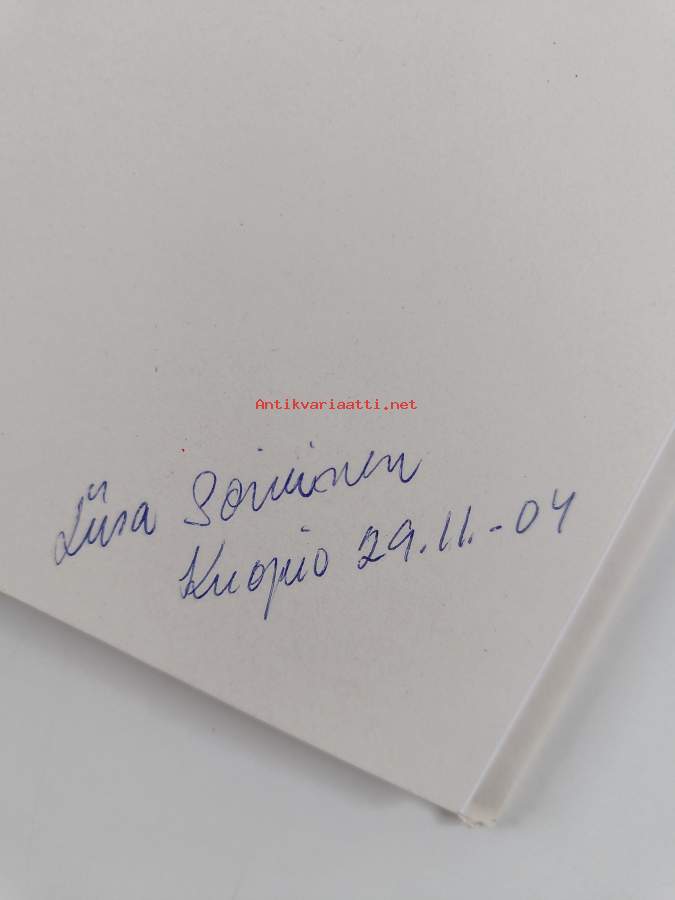 Antikvariaatti.net
Liisa
Kuopio 29.11.-04